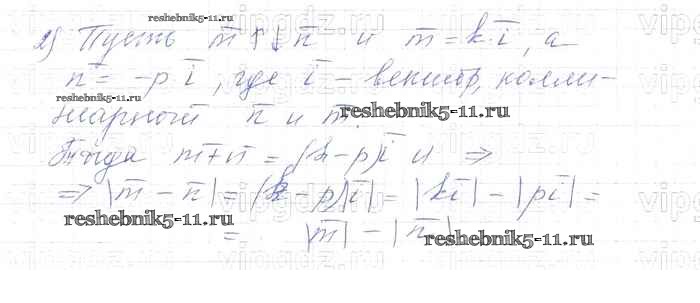 reshebnik5-11.ru
2) Пусть m̅ ↑↓ n̅ и m̅ = k i̅, а
n̅ = -p i̅, где i̅ - вектор, колли-
reshebnik5-11.ru
неарный n̅ и m̅.
reshebnik5-11.ru
Тогда m̅+n̅ = (k-p)i̅ и ⇒
⇒ |m̅ - n̅| = |(k-p)i̅| = |ki̅| - |pi̅| =
reshebnik5-11.ru
= |m̅| - |n̅|
reshebnik5-11.ru